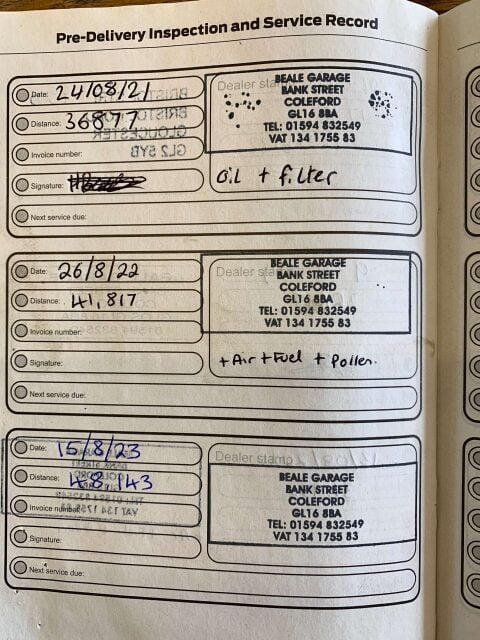 Pre-Delivery Inspection and Service Record
Date: 24/08/21
Distance: 36877
Invoice number:
Signature:
Next service due:
Dealer sta
BEALE GARAGE
BANK STREET
COLEFORD
GL16 8BA
TEL: 01594 832549
VAT 134 1755 83
Oil + filter
Date: 26/8/22
Distance: 41,817
Invoice number:
Signature:
Next service due:
Dealer sta
BEALE GARAGE
BANK STREET
COLEFORD
GL16 8BA
TEL: 01594 832549
VAT 134 1755 83
+ Air + Fuel + Pollen.
Date: 15/8/23
Distance: 48143
Invoice number:
Signature:
Next service due:
Dealer stamp
BEALE GARAGE
BANK STREET
COLEFORD
GL16 8BA
TEL: 01594 832549
VAT 134 1755 83